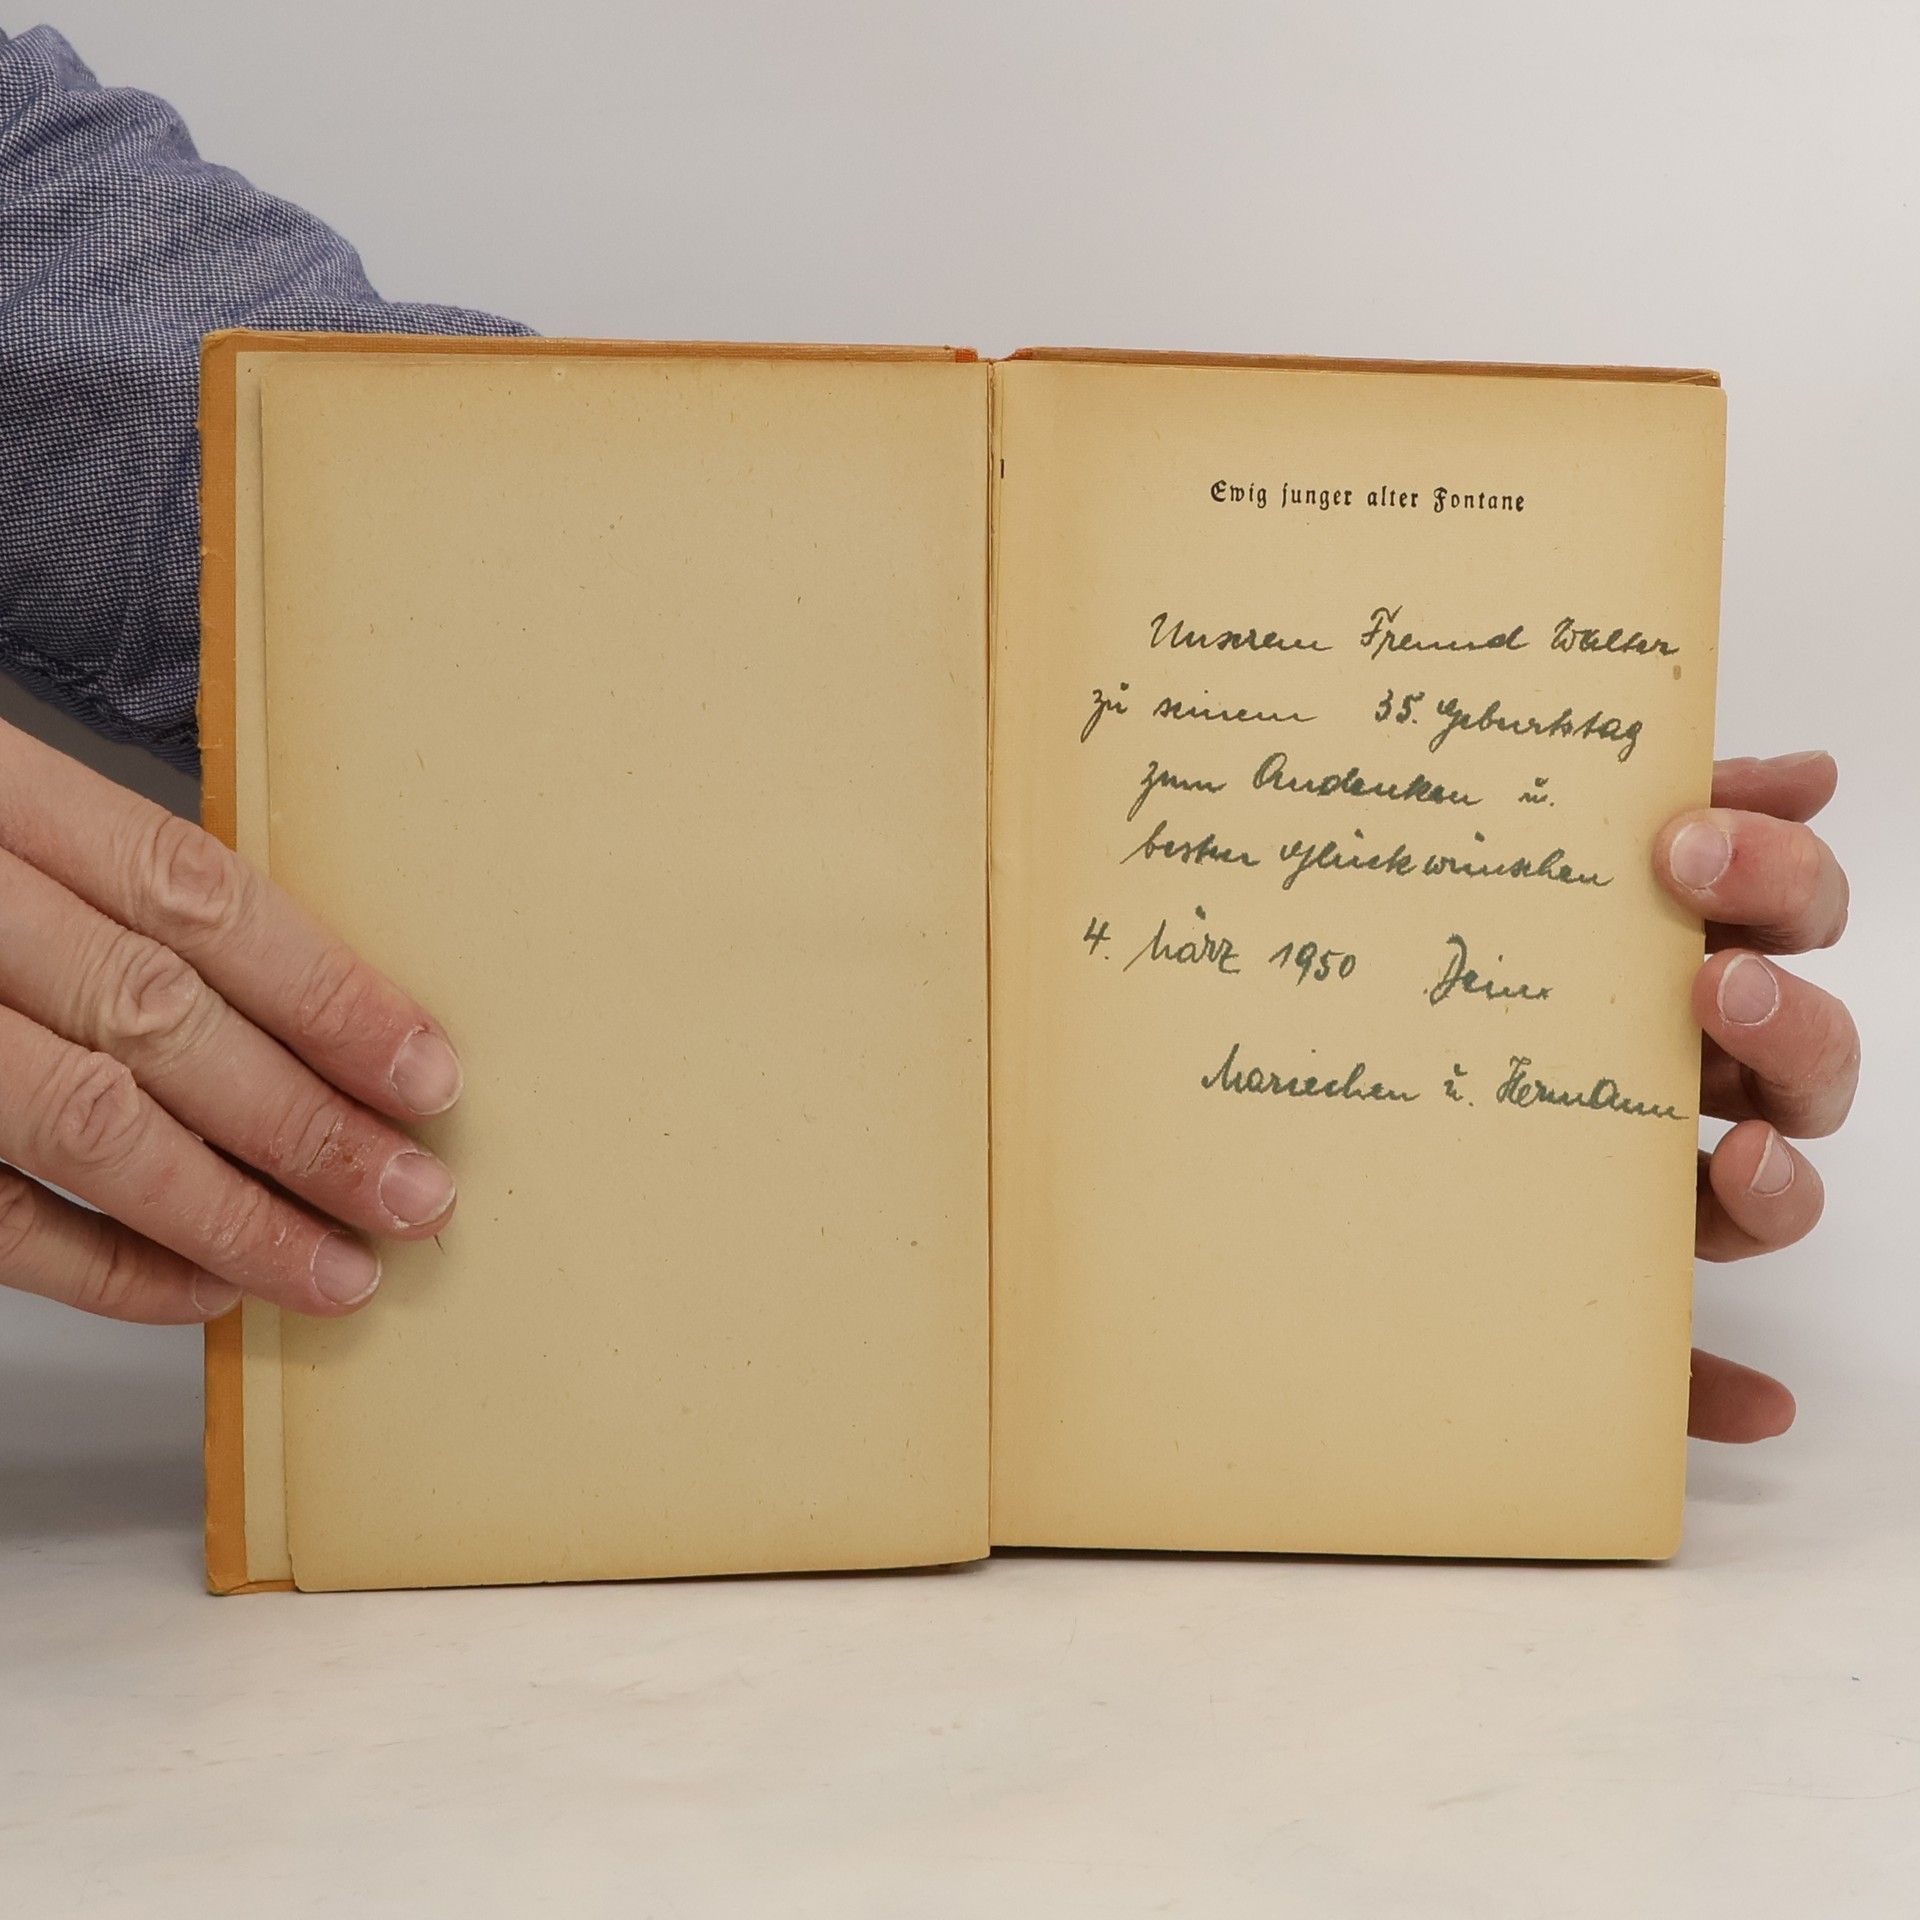 Ewig junger alter Fontane
Unserem Freund Walter
zu seinem 35. Geburtstag
zum Andenken u.
besten Glückwünschen
4. März 1950 Deine
Mariechen u. Hermann